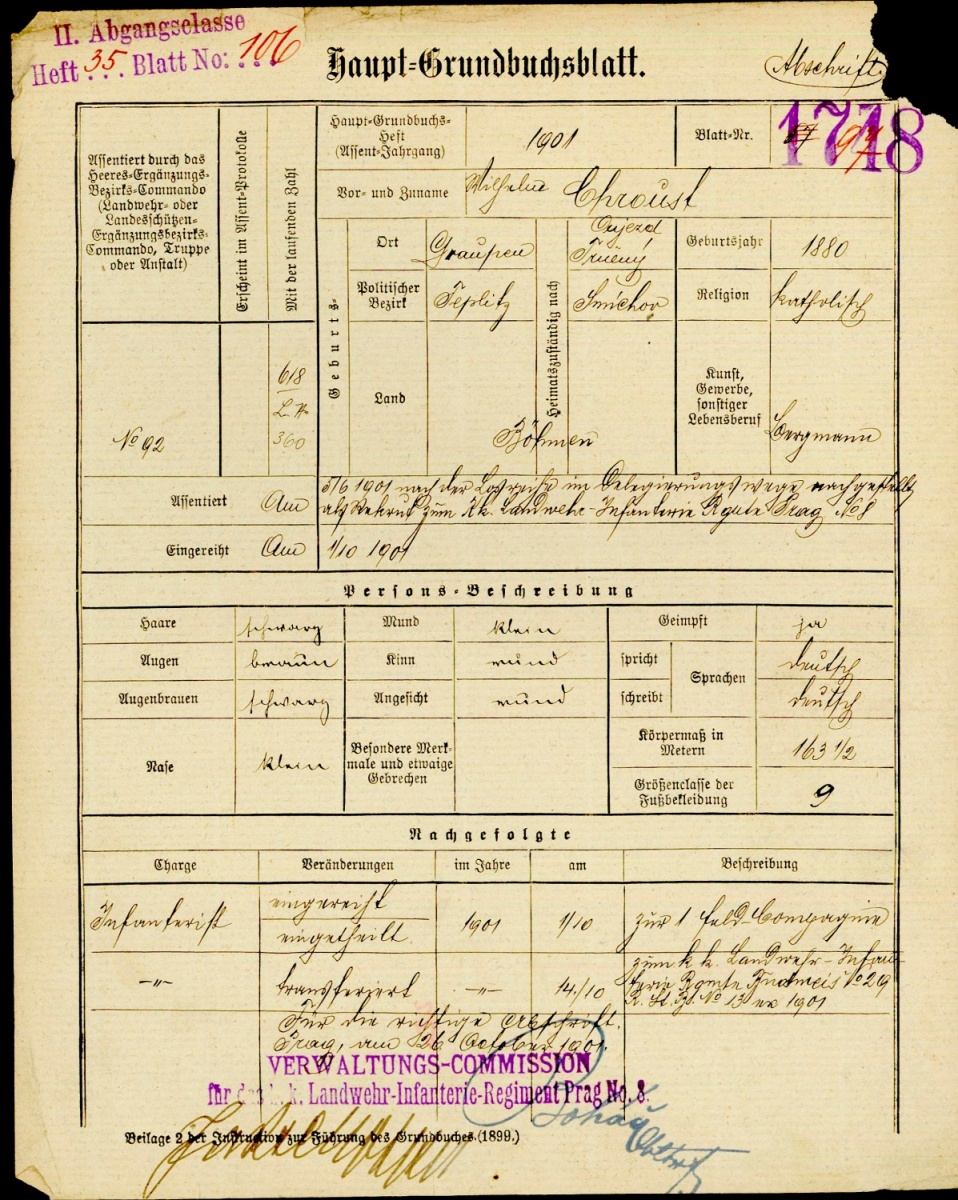 II. Abgangsclasse
Heft 35 Blatt No: 106
Haupt-Grundbuchsblatt.
Abschrift.
Assentiert durch das
Heeres-Ergänzungs-
Bezirks-Commando
(Landwehr- oder
Landesschützen-
Ergänzungsbezirks-
Commando, Truppe
oder Anstalt)
Erscheint im Assent-Protokolle
Mit der laufenden Zahl
Haupt-Grundbuchs-
Heft
(Assent-Jahrgang)
1901
Blatt-Nr.
1718
Vor- und Zuname
Wilhelm Chroust
Geburts-
Ort
Graupen
Heimatszuständig nach
Oujezd
Geburtsjahr
1880
Politischer
Bezirk
Teplitz
Smíchov
Religion
katholisch
Land
Böhmen
Kunst,
Gewerbe,
sonstiger
Lebensberuf
Bergmann
No 92
618
360
Assentiert Am
5/6 1901 nach der Losreihe im Delegierungswege nachgestellt
als Rekrut zum k.k. Landwehr-Infanterie Rgmte Prag No 8
Eingereiht Am 1/10 1901
Persons-Beschreibung
Haare schwarz Mund klein Geimpft ja
Augen braun Kinn rund spricht Sprachen deutsch
Augenbrauen schwarz Angesicht rund schreibt deutsch
Nase klein
Besondere Merk-
male und etwaige
Gebrechen
Körpermaß in
Metern
163 1/2
Größenclasse der
Fußbekleidung
9
Nachgefolgte
Charge Veränderungen im Jahre am Beschreibung
Infanterist eingereiht
eingetheilt 1901 1/10 zur 1 Feld-Compagnie
-"- transferiert -"- 14/10
zum k.k. Landwehr-Infan-
terie Rgmte Budweis No 29
R. St. Bf. No 13 ex 1901
Für die richtige Abschrift.
Prag, am 26 October 1901.
VERWALTUNGS-COMMISSION
für das k. k. Landwehr-Infanterie-Regiment Prag No. 8.
Beilage 2 der Instruction zur Führung des Grundbuches (1899.)